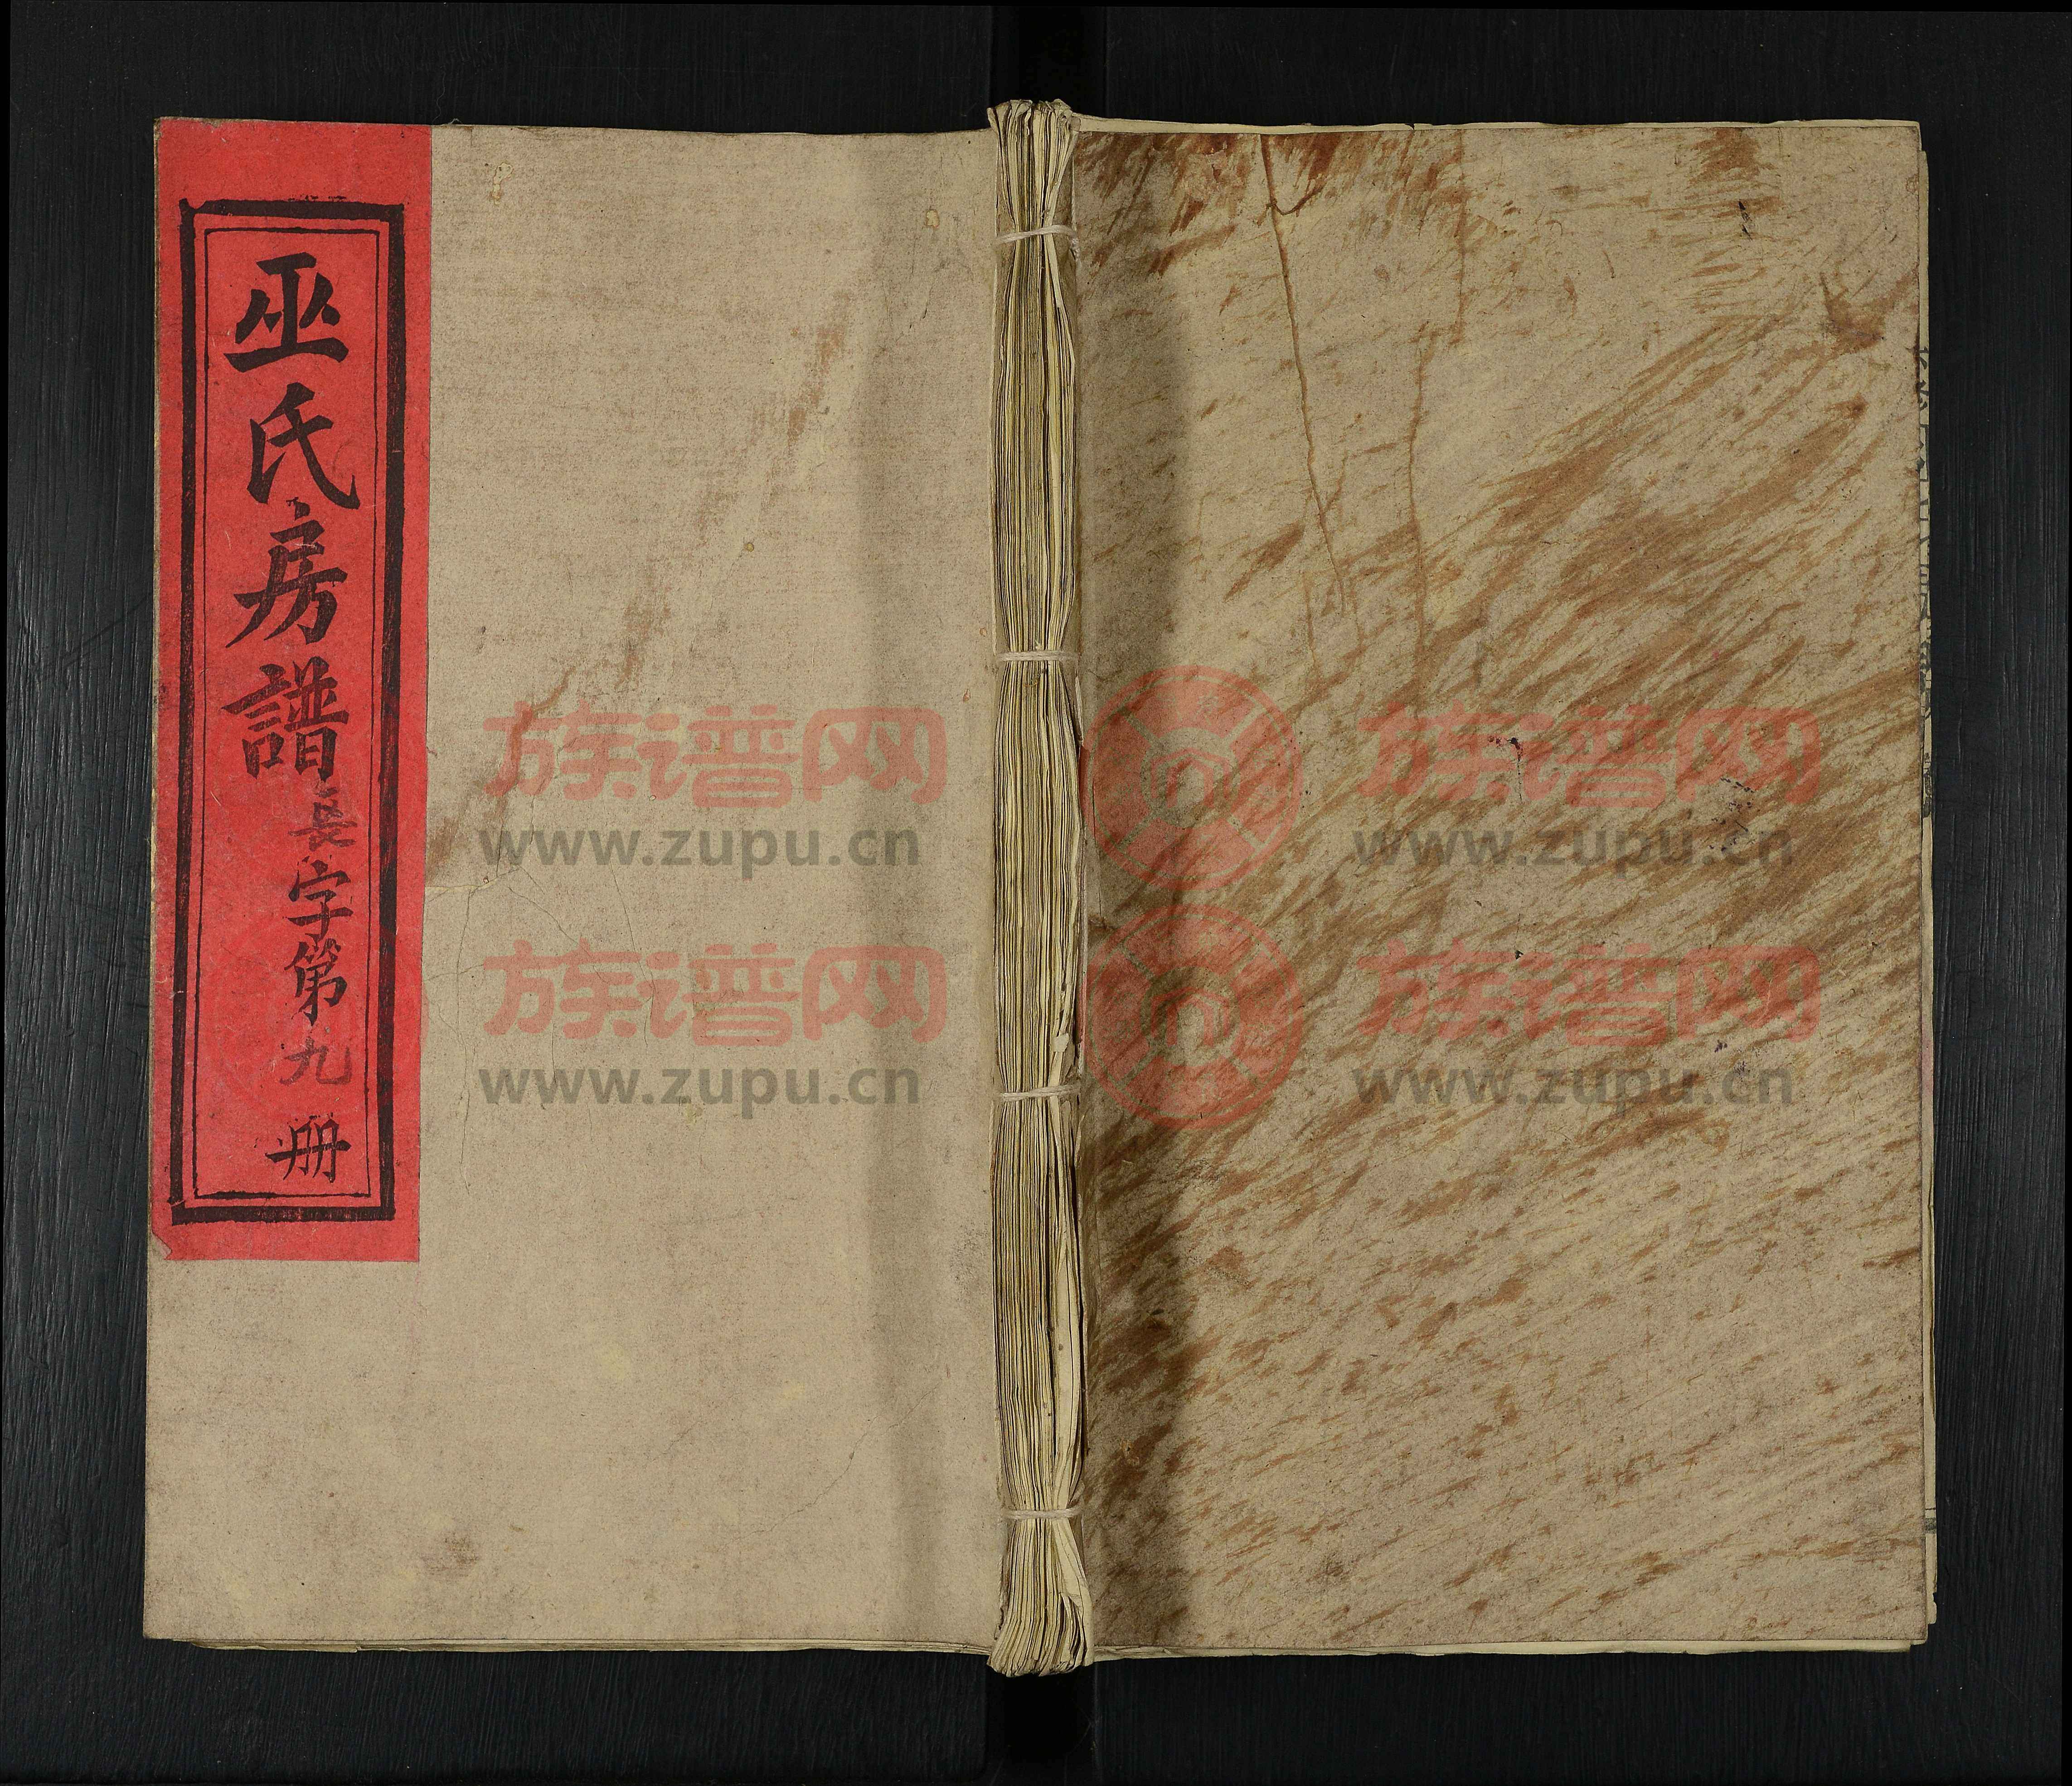 巫氏房譜長字第九册
族谱网 族谱网
www.zupu.cn www.zupu.cn
族谱网 族谱网
www.zupu.cn www.zupu.cn